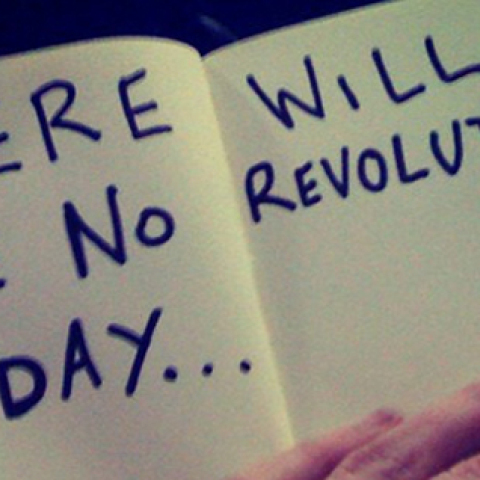 ERE WILL
No REVOLUT
DAY...